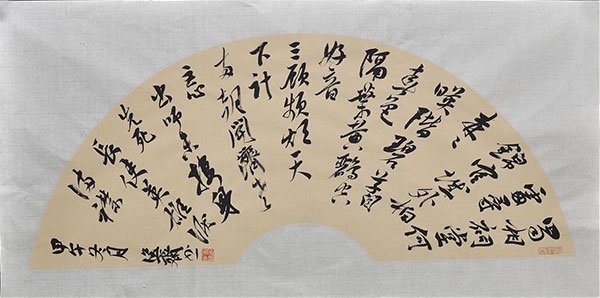 蜀相祠堂何
處尋
錦官城外柏
森々
映階碧草自
春色
隔葉黃鸝空
好音
三顧頻煩天
下計
兩朝開濟老
臣心
出師未捷身
先死
長使英雄淚
滿襟
甲午